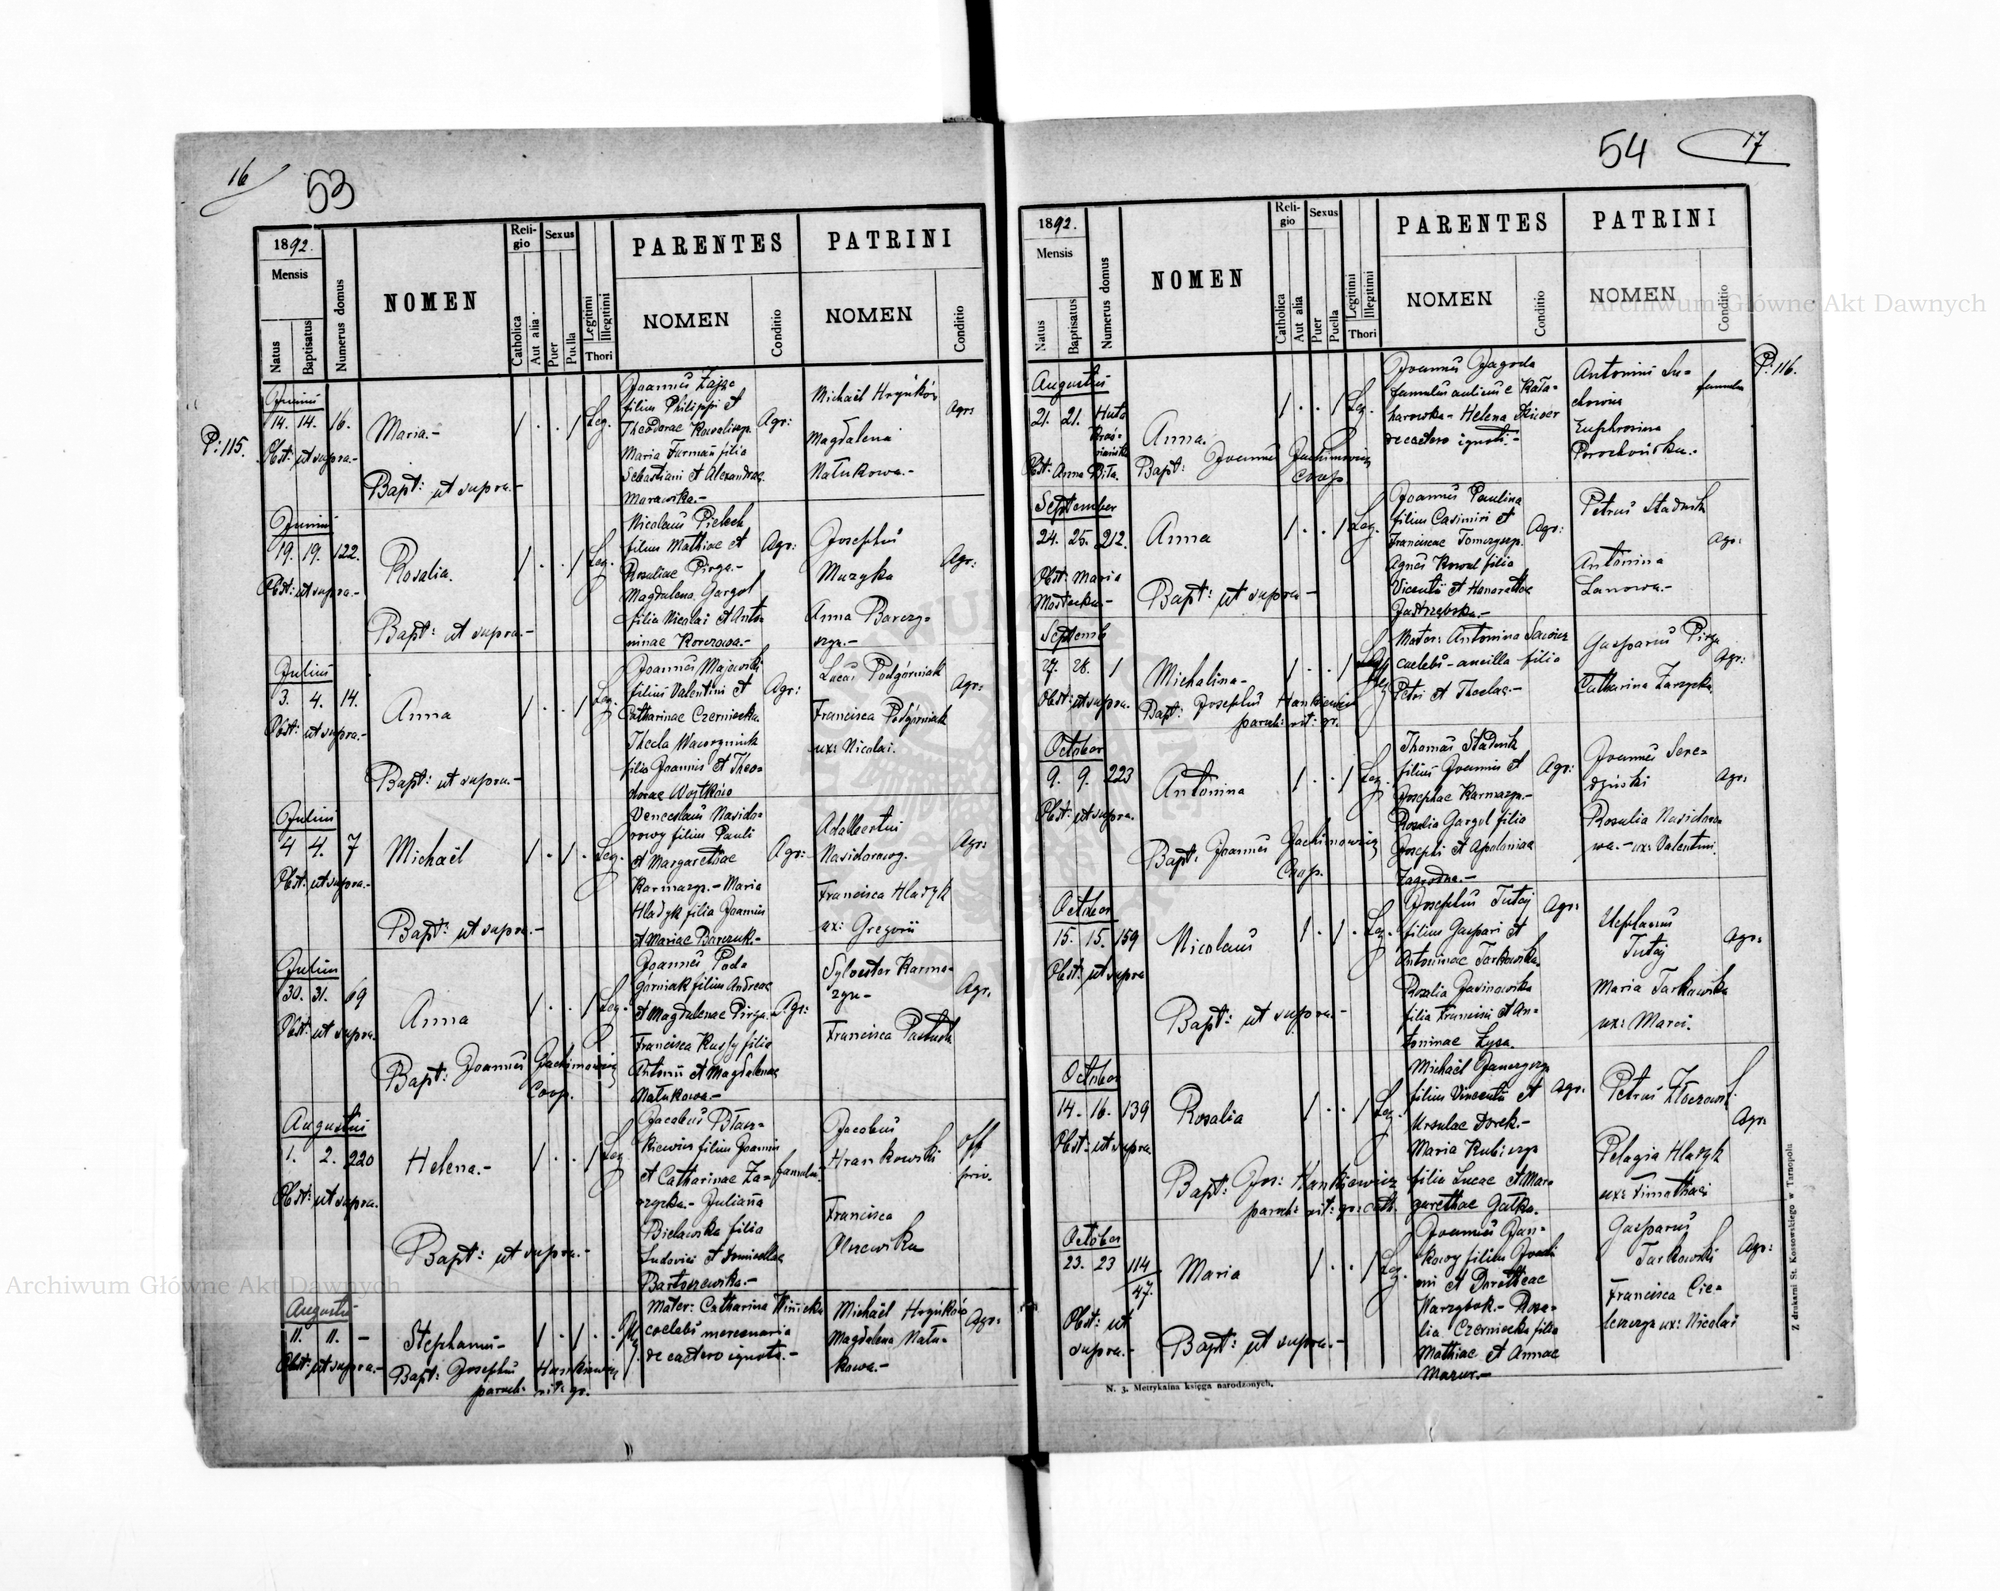 16
53
1892.
Mensis
Natus
Baptisatus
Numerus domus
NOMEN
Religio
Catholica
Aut alia
Sexus
Puer
Puella
Legitimi
Illegitimi
Thori
PARENTES
NOMEN
Conditio
PATRINI
NOMEN
Conditio
P: 115.
Junius
14. 14. 16.
Obst: ut supra.-
Maria.-
Bapt: ut supra.-
Leg.
Joannes Zając
filius Philippi et
Theodorae
Maria Furman filia
Sebastiani et Alexandrae
Agr:
Michaël Hryńków
Magdalena
Natukowa.-
Agr:
Junius
19. 19. 122.
Obst: ut supra.-
Rosalia.
Bapt: ut supra.-
Leg.
Nicolaus Pielech
filius Mathiae et
Rosaliae Pirga.-
Magdalena Gargol
filia Nicolai et Anto-
ninae
Agr:
Josephus
Muzyka
Anna Barczy-
szyn.-
Agr:
Julius
3. 4. 14.
Obst: ut supra.-
Anna
Bapt: ut supra.-
Leg.
Joannes Majewski
filius Valentini et
Catharinae Czerniecka.
Thecla
filia Joannis et Theo-
dorae Wojtków
Agr:
Lucas Podgórniak
Francisca Podgórniak
ux: Nicolai.
Agr:
Julius
4 4. 7
Obst: ut supra.-
Michaël
Bapt: ut supra.-
Leg.
Venceslaus Nasido-
rowy filius Pauli
et Margarethae
Karmazyn.- Maria
Hladyk filia Joannis
et Mariae Barczuk.-
Agr:
Adalbertus
Nasidorowy.
Francisca Hladyk
ux: Gregorii
Agr:
Julius
30. 31. 69
Obst: ut supra.
Anna
Bapt: Joannes Jachimowicz
Coop.
Leg.
Joannes Pod-
górniak filius Andreae
et Magdalenae Pirga.
Francisca Kussy filia
Antonii et Magdalenae
Natukowa.-
Agr:
Sylvester Karma-
zyn-
Francisca Pastuch
Agr.
Augustus
1. 2. 220
Obst: ut supra.
Helena.-
Bapt: ut supra.-
Leg
Jacobus Błasz-
kiewicz filius Joannis
et Catharinae Za-
rzycka.- Juliana
Bielawska filia
Ludovici et Domicellae
Bartoszewska.-
famulus
Jacobus
Hrankowski
Francisca
Olszewska
off
priv.
Augustus
11. 11. -
Obst: ut supra.-
Stephanus-
Bapt: Josephus Hankiewicz
paroch: rit: gr.
Mater: Catharina Winicka
caelebs mercenaria
de caetero ignota.-
Michaël Hryńków
Magdalena Natu-
kowa.-
Agr:
54
17
1892.
Mensis
Natus
Baptisatus
Numerus domus
NOMEN
Religio
Catholica
Aut alia
Sexus
Puer
Puella
Legitimi
Illegitimi
Thori
PARENTES
NOMEN
Conditio
PATRINI
NOMEN
Conditio
P: 116.
Augustus
21. 21. Huta
Obst: Anna Biła.
Anna.
Bapt: Joannes Jachimowicz
Coop.
Leg.
Joannes Jagoda
famulus aulicus e Kata-
harowka- Helena
de caetero ignoti.-
Antonius Su-
chowicz
Euphrosina
famulus
September
24. 25. 212.
Obst: Maria
Anna
Bapt: ut supra.-
Leg.
Joannes Paulina
filius Casimiri et
Franciscae Tomczyszyn.
Agnes Kowal filia
Vicentii et Honorathae
Jastrzębska.-
Agr:
Petrus Stadnik
Antonina
Lanowa.-
Agr:
Septemb
27. 28. 1
Obst: ut supra.
Michalina-
Bapt: Josephus Hankiewicz
paroch: rit: gr.
Mater: Antonina Sawicz
caelebs- ancilla filia
Petri et Theclae.-
Gasparus Pirga
Catharina Zarzycka
Agr:
October
9. 9. 223
Obst: ut supra.
Antonina
Bapt: Joannes Jachimowicz
Coop.
Leg.
Thomas Stadnik
filius Joannis et
Josephae Karmazyn.-
Rosalia Gargol filia
Josephi et Apoloniae
Zagrodna.-
Agr:
Joannes Sere-
dziński
Rosalia Nasidoro-
wa.- ux: Valentini.
Agr:
October
15. 15. 159
Obst: ut supra
Nicolaus
Bapt: ut supra.-
Leg.
Josephus Tutaj
filius Gaspari et
Antoninae Tarkowska.
Rosalia Jasinowska
filia Francisci et An-
toninae Łysa.
Agr:
Tutaj
Maria Tarkowska
ux: Marci.
Agr:
October
14. 16. 139
Obst: ut supra
Rosalia
Bapt: Jos: Hankiewicz
paroch: rit: gr: cath.
Leg.
Michaël
filius Vincentii et
Ursulae Dorek.-
Maria Kubiszyn
filia Lucae et Mar-
garethae Gałka.
Agr:
Petrus Złoczowski
Pelagia Hladyk
ux: Timothaei
Agr.
October
23. 23 114
47.
Obst: ut
supra.-
Maria
Bapt: ut supra.-
Leg.
Joannes Jan-
kowy filius Joachi
mi et Dorotheae
Warzybok.- Rosa-
lia Czerniecka filia
Mathiae et Annae
Mazur.-
Gasparus
Tarkowski
Francisca Cie-
lenzyn ux: Nicolai
Agr:
N. 3. Metrykalna księga narodzonych.
Z drukarni St. Kossowskiego w Tarnopolu
Archiwum Główne Akt Dawnych
Archiwum Główne Akt Dawnych